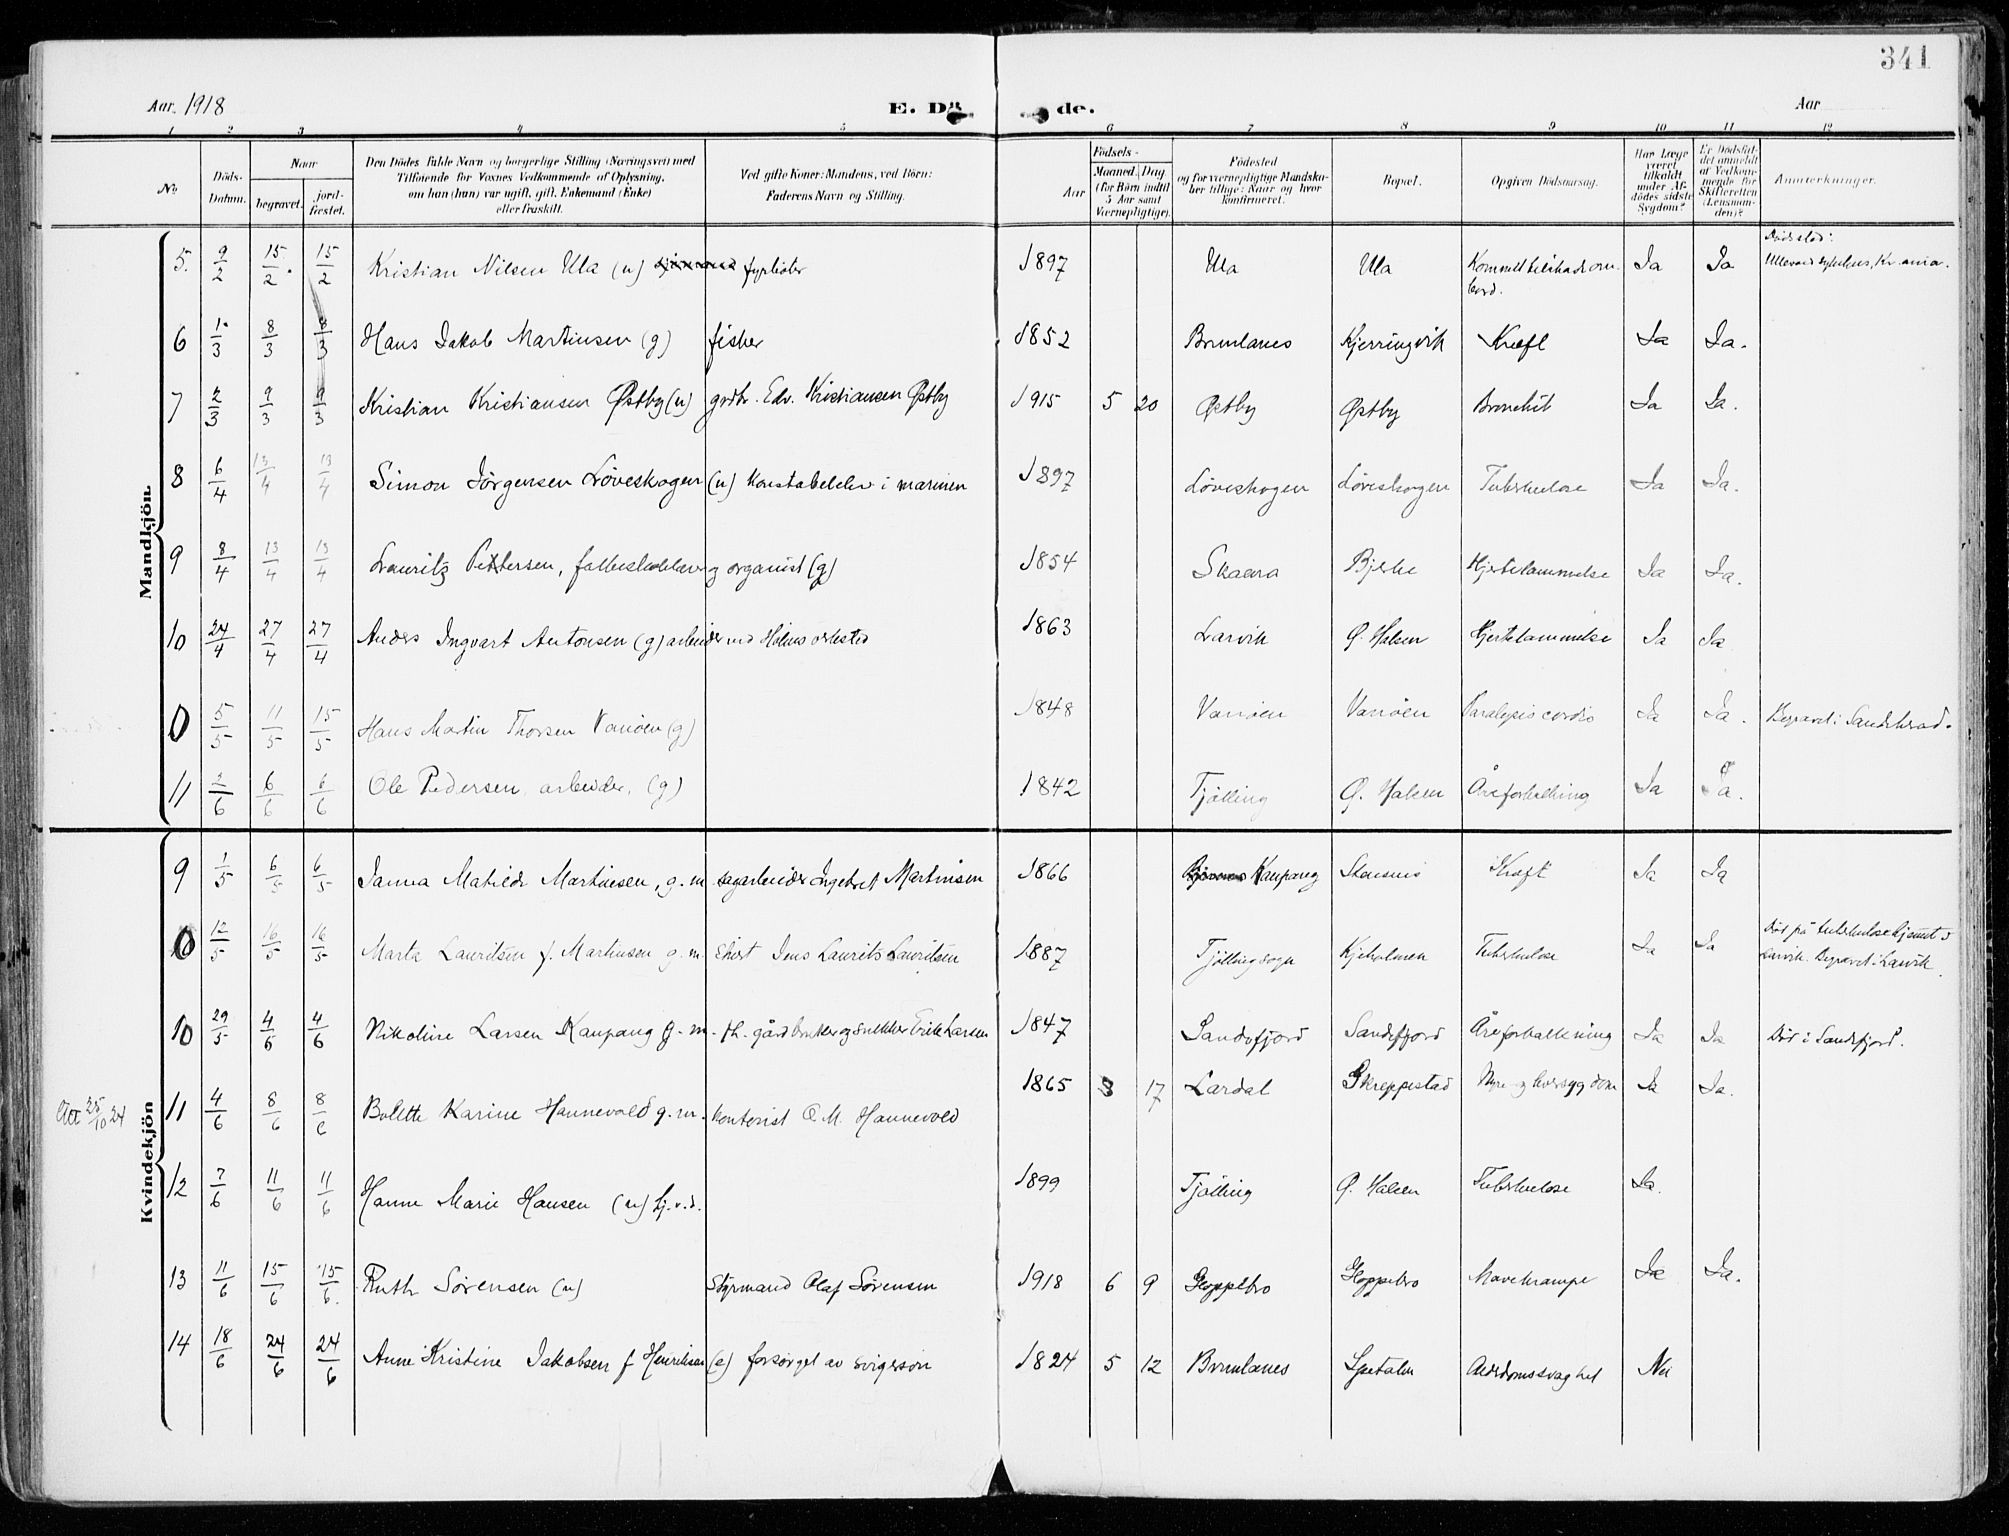 341
Aar 1918 E. Dö de. Aar
1 2 3 4 5 6 7 8 9 10 11 12
No. Döds-Datum. Naar begravet. jordfæstet. Den Dödes fulde Navn og borgerlige Stilling (Næringsvei) med Tilföiende for Voxnes Vedkommende af Oplysning, om han (hun) var ugift, gift, Enkemand (Enke) eller fraskilt. Ved gifte Koner: Mandens, ved Börn: Faderens Navn og Stilling. Födsels- Aar Maaned. Dag (for Börn indtil 5 Aar samt Værnepligtige). Födested og for værnepligtige Mandskaber tillige: Naar og hvor konfirmeret. Bopæl. Opgiven Dödsaarsag. Har Læge været tilkaldt under Afdödes sidste Sygdom? Er Dödsfaldet anmeldt af Vedkommende for Skifteretten (Lensmanden)? Anmærkninger.
Mandkjön.
5. 9/2 15/2 15/2 Kristian Nilsen Ula (u) fyrbøter 1897 Ula Ula Ja Ja Dødssted: Ullevaal sykehus, Kr.ania.
6 1/3 8/3 8/3 Hans Jakob Martinsen (g) fisker 1852 Brunlanes Kjerringvik Kræft Ja Ja.
7 2/3 9/3 9/3 Kristian Kristiansen Østby (u) grdbr. Edv. Kristiansen Østby 1915 5 20 Østby Østby Bronchit Ja Ja.
8 6/4 13/4 13/4 Simon Jørgensen Løveskogen (u) Konstabelelev i marinen 1897 Løveskogen Løveskogen Tuberkulose Ja Ja.
9 8/4 13/4 13/4 Lauritz Pettersen, folkeskolelærer og organist (g) 1854 Skaara Bjerke Hjertelammelse Ja Ja.
10 24/4 27/4 27/4 Anders Ingvart Antonsen (g) arbeider ved Holms verksted 1863 Larvik Ø. Halsen Hjertelammelse Ja Ja
0 5/5 11/5 15/5 Hans Martin Thorsen Varnøen (g) 1848 Varnøen Varnøen Paralysis cordis Ja Ja. Begravet i Sandeherad.
11 2/6 6/6 6/6 Ole Pedersen arbeider, (g) 1842 Tjølling Ø. Halsen Åreforkalkning Ja Ja.
Kvindekjön
9 1/5 6/5 6/5 Janna Matilde Martinsen, g. m. sagarbeider Ingebret Martinsen 1866 Kaupang Kræft Ja Ja
0 12/5 16/5 16/5 Marta Lauritsen f. Martinsen g. m. Jens Laurits Lauritsen 1887 Tjøllingsogn Kjeholmen Tuberkulose Ja Ja Død på tuberkulosehjemmet i Larvik. Begravet i Larvik.
10 29/5 4/6 4/6 Nikoline Larsen Kaupang g. m. fh. gårdbruker og snekker Erik Larsen 1847 Sandefjord Sandefjord Åreforkalkning Ja Ja Død i Sandefjord.
Att 25/10 24 11 4/6 8/6 8/6 Bolette Karine Hannevold g. m. kontorist O. M. Hannevold 1865 3 17 Lardal Skreppestad Nyre- og hjertesygdom Ja Ja.
12 7/6 11/6 11/6 Hanne Marie Hansen (u) hj. v. d. 1899 Tjølling Ø. Halsen Tuberkulose Ja.
13 11/6 15/6 15/6 Ruth Sørensen (u) Styrmand Olaf Sørensen 1918 6 9 Gloppebro Gloppebro Mavekrampe Ja Ja.
14 18/6 24/6 24/6 Anne Kristine Jakobsen f Henriksen (e) forsørget av svigersøn 1824 5 12 Brunlanes Alderdomssvaghet Nei